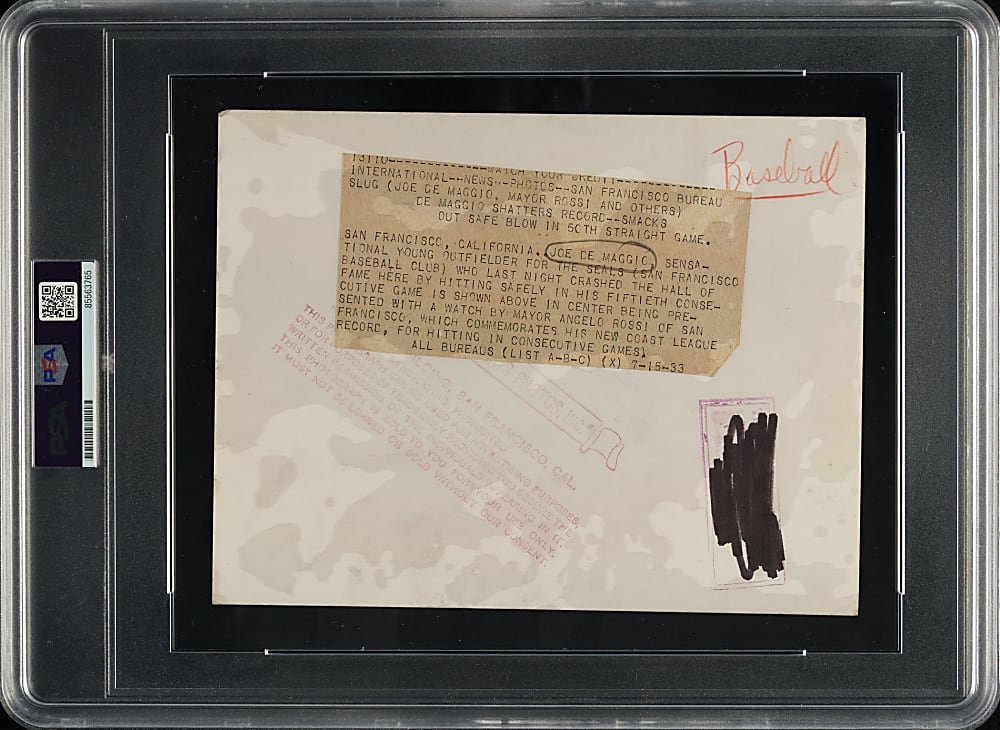 Baseball
13110---------------WATCH YOUR CREDIT---------------
INTERNATIONAL--NEWS--PHOTOS--SAN FRANCISCO BUREAU
SLUG (JOE DE MAGGIO, MAYOR ROSSI AND OTHERS)
DE MAGGIO SHATTERS RECORD--SMACKS
OUT SAFE BLOW IN 50TH STRAIGHT GAME.
SAN FRANCISCO, CALIFORNIA. JOE DE MAGGIO, SENSA-
TIONAL YOUNG OUTFIELDER FOR THE SEALS (SAN FRANCISCO
BASEBALL CLUB) WHO LAST NIGHT CRASHED THE HALL OF
FAME HERE BY HITTING SAFELY IN HIS FIFTIETH CONSE-
CUTIVE GAME IS SHOWN ABOVE IN CENTER BEING PRE-
SENTED WITH A WATCH BY MAYOR ANGELO ROSSI OF SAN
FRANCISCO, WHICH COMMEMORATES HIS NEW COAST LEAGUE
RECORD, FOR HITTING IN CONSECUTIVE GAMES)
ALL BUREAUS (LIST A-B-C) (X) 7-15-33
PHOTOS INC
BUILDING, SAN FRANCISCO, CAL.
THIS PHOTOGRAPH IS SOLD TO YOU FOR YOUR USE ONLY.
IT MUST NOT BE LOANED OR SOLD WITHOUT OUR CONSENT.
PSA
85563765
PSA